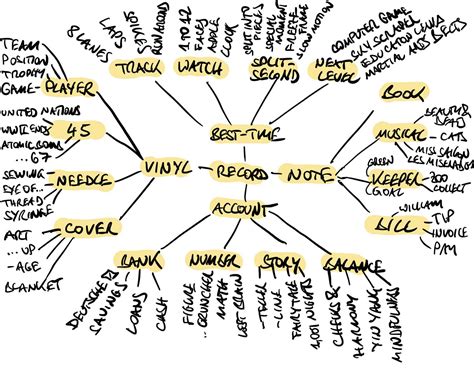 TEAM
POSITION
TROPHY
GAME-
PLAYER
8 LANES
LAPS
RUN AROUND
TRACK
1 TO 12
FACES
APPLE
CLOCK
WATCH
SPLIT INTO
PIECES
SPECIAL
MOMENT
FREEZE
FRAME
SLOW MOTION
SPLIT-
SECOND
COMPUTER GAME
SKYSCRAPER
EDUCATION LEVELS
MARTIAL ARTS BELTS
NEXT
LEVEL
BEST-TIME
UNITED NATIONS
WWII ENDS
ATOMIC BOMB
...67
45
SEWING
EYE OF...
THREAD
SYRINGE
NEEDLE
ART
...UP
-AGE
BLANKET
COVER
VINYL
RECORD
NOTE
BOOK
MUSICAL
BEAUTY &
BEAST
-CATS
MISS SAIGON
LES MISERABLES
GREEN
KEEPER
GOAL
ZOO
COLLECT
BILL
WILLIAM
TV
INVOICE
P/M
ACCOUNT
BANK
DEUTSCHE
SAVINGS
LOANS
CASH
NUMBER
FIGURE
-CRUNCHER
MATH
LEFT BRAIN
STORY
-TELLER
-LINE
FAIRYTALE
1,001 NIGHTS
BALANCE
CHECKS &
HARMONY
YIN YANG
MINDFULNESS